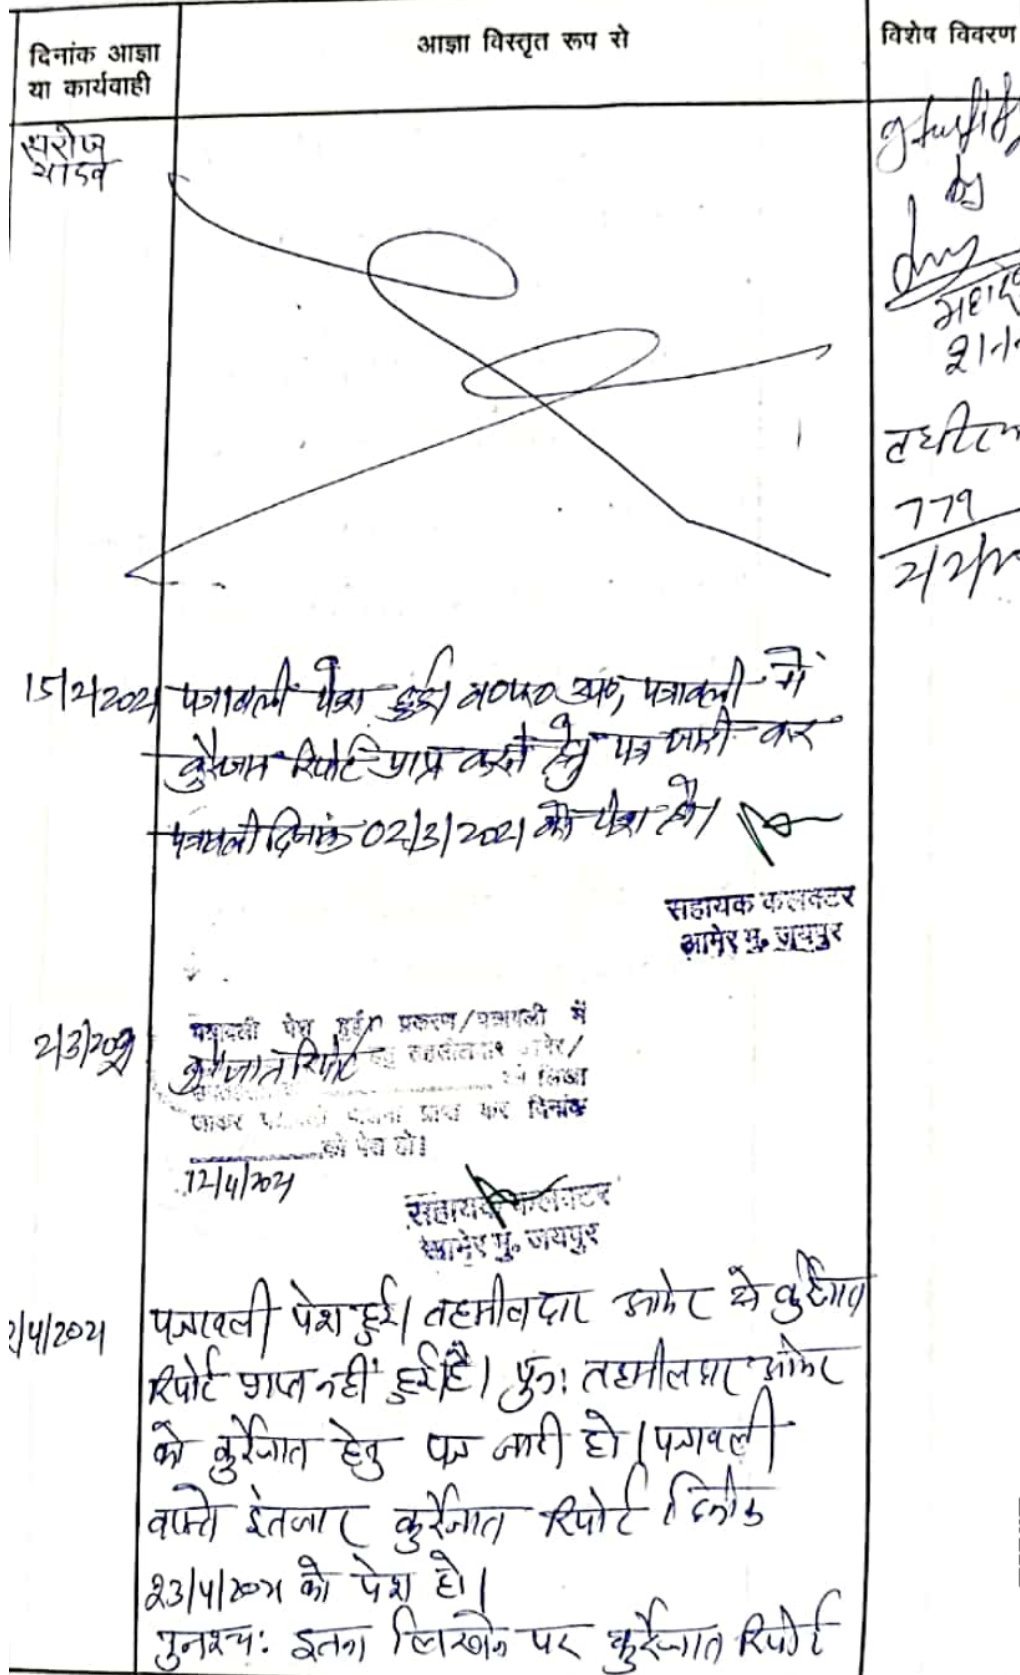 दिनांक आज्ञा
या कार्यवाही
आज्ञा विस्तृत रूप रो
विशेष विवरण
सरोज
यादव
by
तहसील
779
15/2/2021 पत्रावली पेश हुई। व०प०उप०, पत्रावली में
कुर्रेजात रिपोर्ट प्राप्त करने हेतु पत्र जारी कर
पत्रावली दिनांक 02/3/2021 को पेश हो।
सहायक कलक्टर
आमेर मु. जयपुर
2/3/2021 पत्रावली पेश हुई। प्रकरण/पत्रावली में
कुर्रेजात रिपोर्ट हेतु तहसीलदार आमेर/
को लिखा
जाकर पालना प्राप्त कर दिनांक
को पेश हो।
12/4/2021
सहायक कलक्टर
आमेर मु. जयपुर
2/4/2021 पत्रावली पेश हुई। तहसीलदार आमेर से कुर्रेजात
रिपोर्ट प्राप्त नहीं हुई है। पुन: तहसीलदार आमेर
को कुर्रेजात हेतु पत्र जारी हो। पत्रावली
वास्ते इंतजार कुर्रेजात रिपोर्ट दिनांक
23/4/2021 को पेश हो।
पुनश्च: इतना लिखने पर कुर्रेजात रिपोर्ट